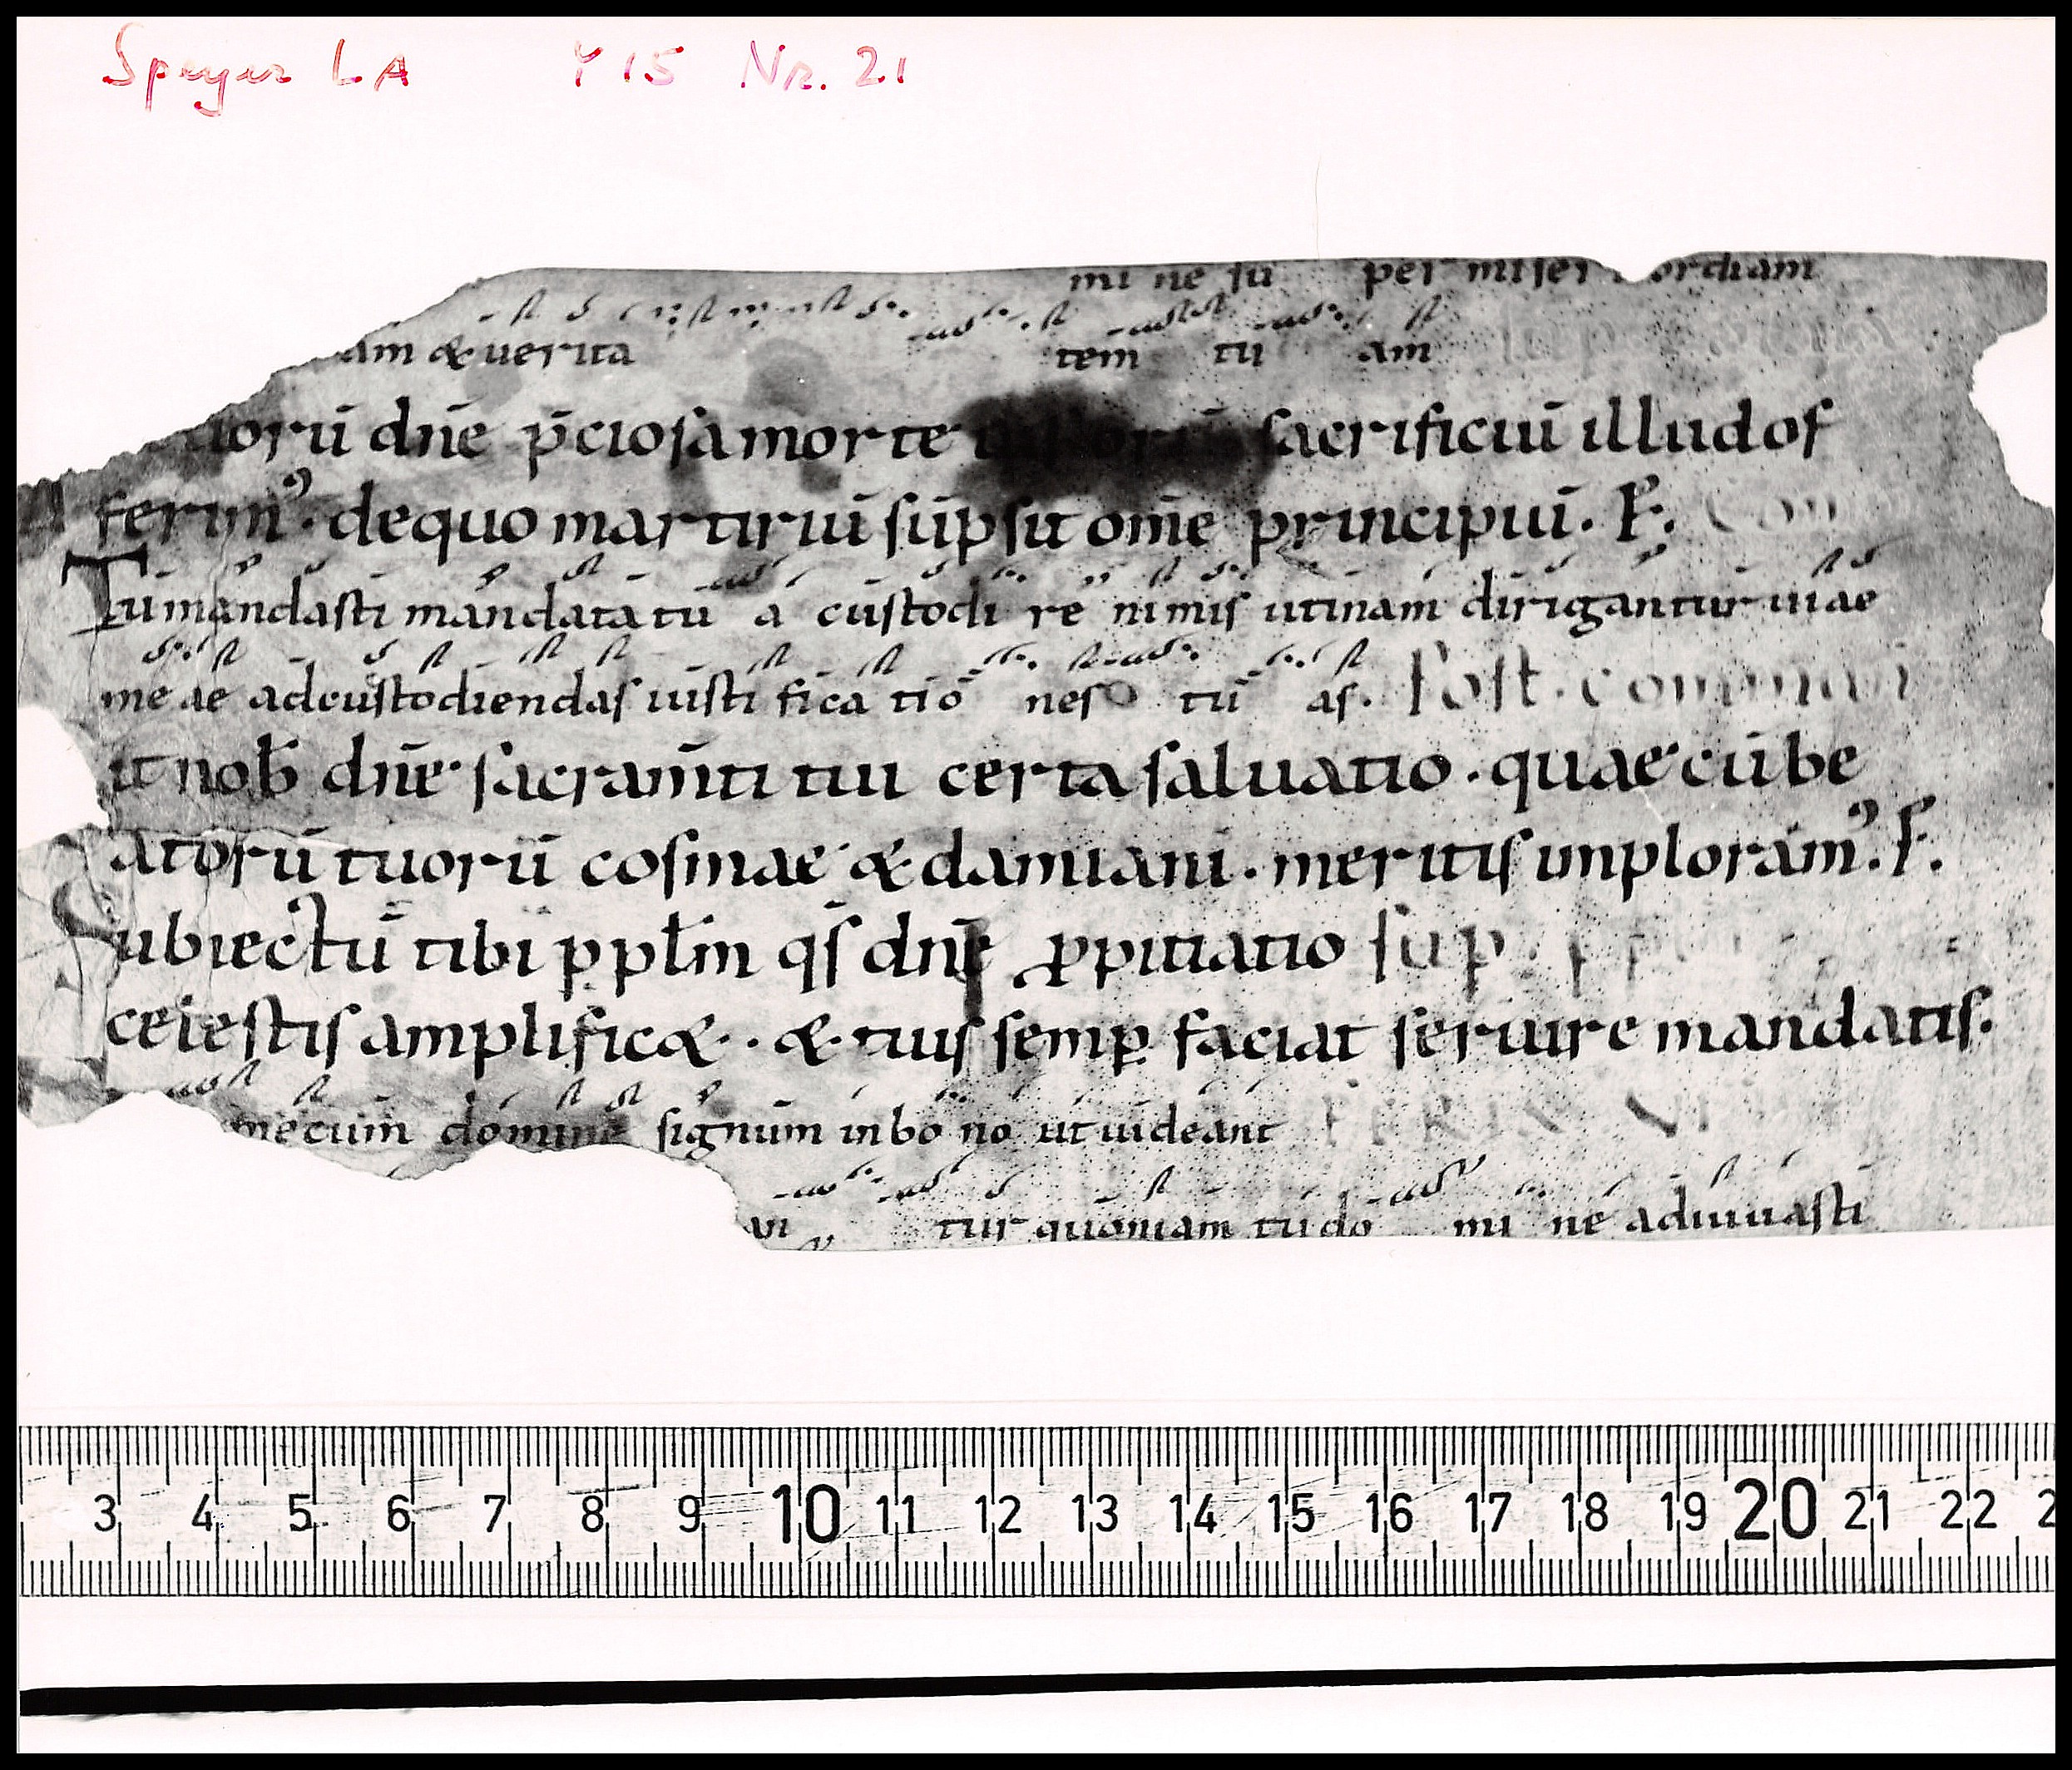 Speyer LA Y 15 Nr. 21
mi ne sū per miser ordiam
am & uerita tem tu am
uorū dn̄e p̄ciosa morte sacrificiū illud of
ferim᾽. de quo martiriū sūpsit om̄e principiū. P̄. Com
Tu mandasti mandata tu a custodi re nimis utinam dirigantur uiae
me ae ad custodiendas iusti fica tio nes tu as. Post. commun
it nob̄ dn̄e sacram̄ti tui certa saluatio. quae cū be
atorū tuorū cosmae & damiani. meritis imploram᾽. P̄.
Subiectū tibi pplm̄ qs̄ dn̄e ꝓpitiatio sup. ppl
celestis amplific&. & tuis semp̱ faciat seruire mandatis.
mecum domine signum in bo no ut uideant FERIA VI
tur quoniam tu do mi ne adiuuasti
3 4 5 6 7 8 9 10 11 12 13 14 15 16 17 18 19 20 21 22 2